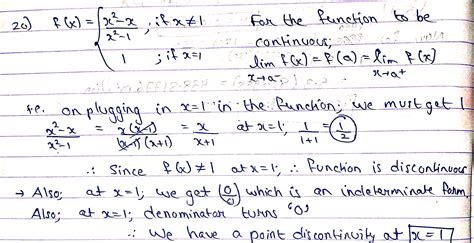 20) f(x) = { x²-x / x²-1 , ; if x≠1 For the function to be
1 ; if x=1 continuous;
lim x→a⁻ f(x) = f(a) = lim x→a⁺ f(x)
on plugging in x=1 in the function; we must get 1
x²-x / x²-1 = x(x-1) / (x-1)(x+1) = x / x+1 at x=1; 1 / 1+1 = 1/2
∴ Since f(x) ≠ 1 at x=1; ∴ function is discontinuous
→ Also; at x=1; we get (0/0) which is an indeterminate form
Also; at x=1; denominator turns '0'
∴ We have a point discontinuity at x=1